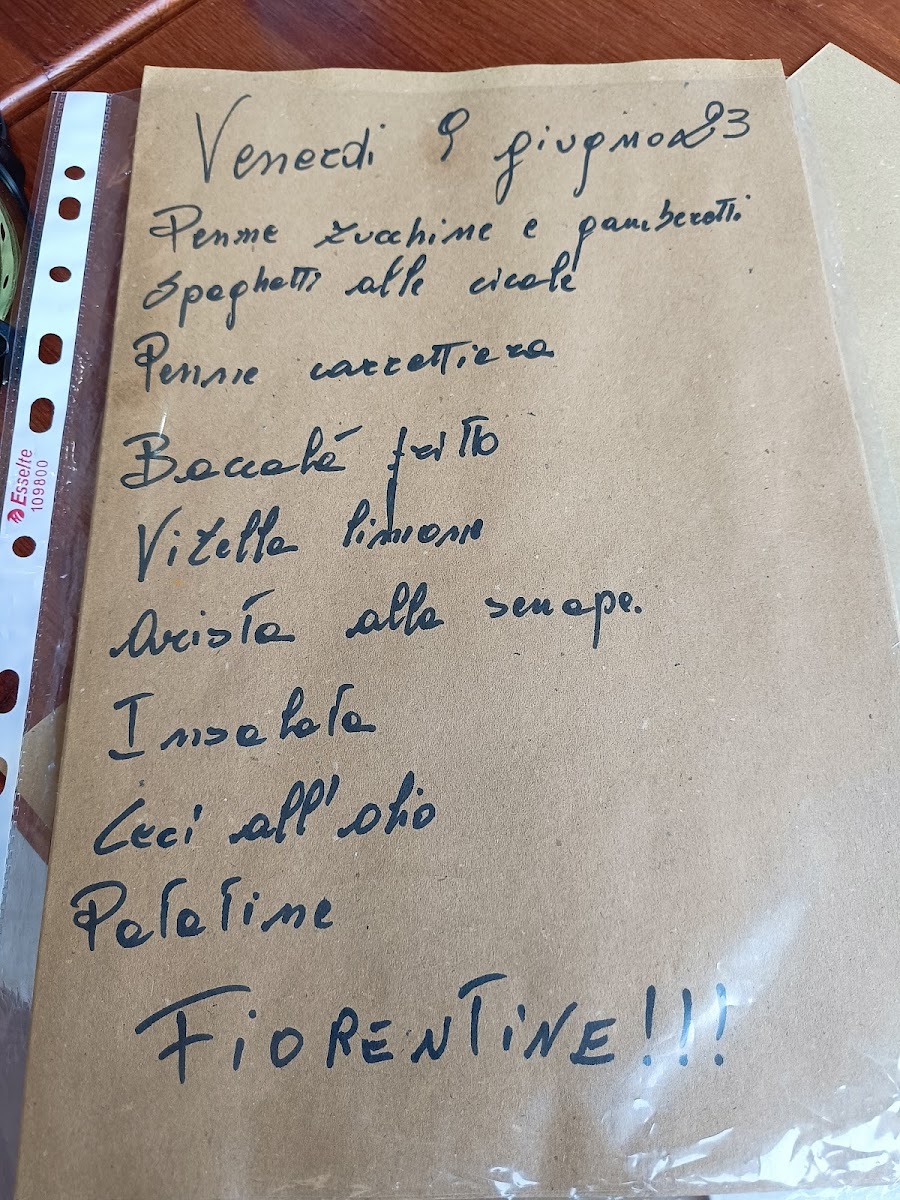 Venerdi 9 giugno 23
Penne zucchine e gamberetti
Spaghetti alle cicale
Penne carrettiera
Baccalá fritto
Vitella limone
Arista alla senape.
Insalata
Ceci all'olio
Patatine
FiORENTiNE!!!
Esselte
109800